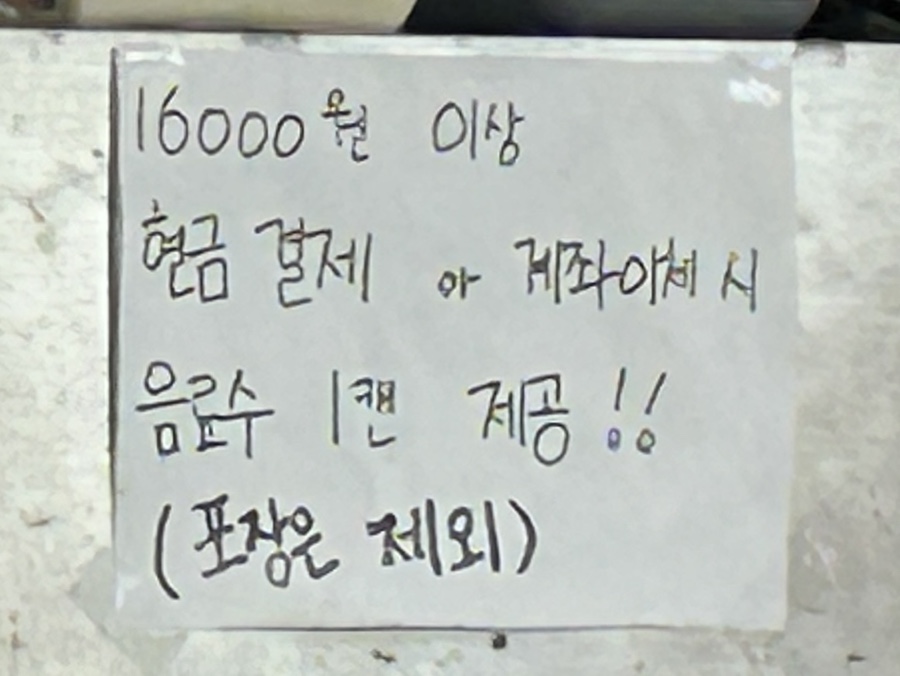 16000원 이상
현금 결제 or 계좌이체 시
음료수 1캔 제공!!
(포장은 제외)